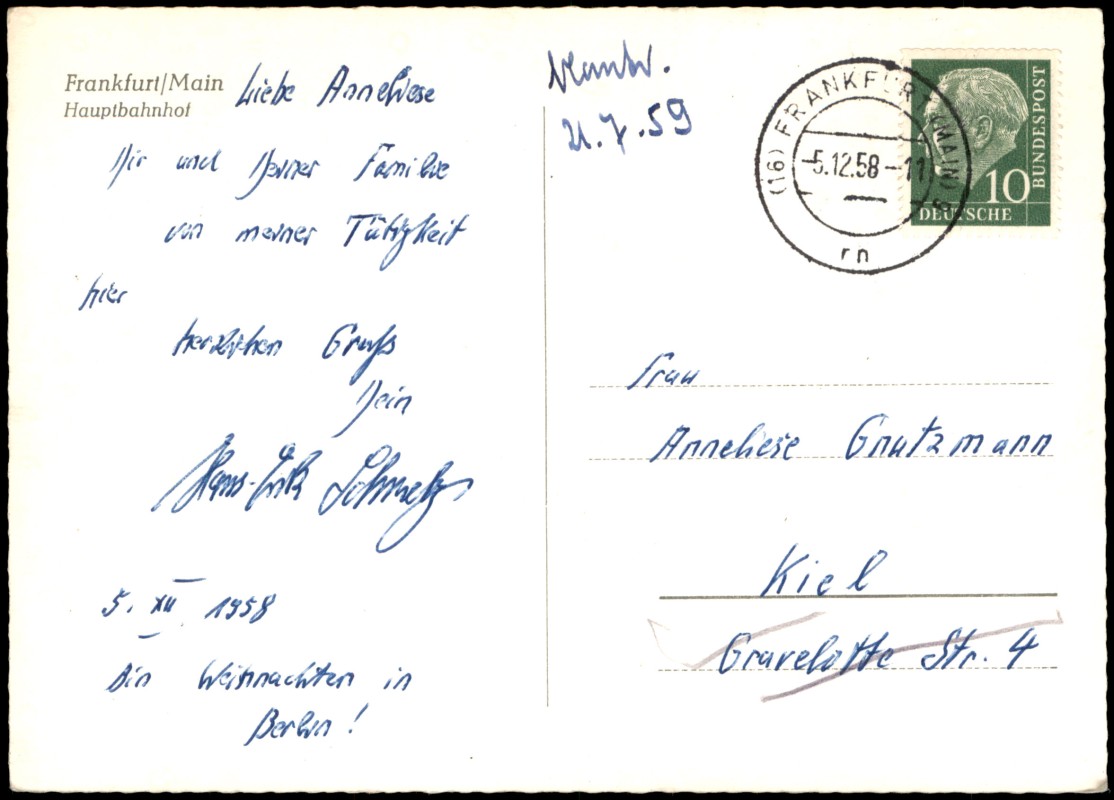 Frankfurt/Main
Hauptbahnhof
Liebe Anneliese
Dir und Deiner Familie
von meiner Tätigkeit
hier
herzlichen Gruß
Dein
Hans-Erik Schmelz
5. XII 1958
Bin Weihnachten in
Berlin!
21.7.59
(16) FRANKFURT (MAIN)
-5.12.58-11
rn
10
DEUTSCHE
BUNDESPOST
Frau
Anneliese Gnutzmann
Kiel
Gravelotte Str. 4